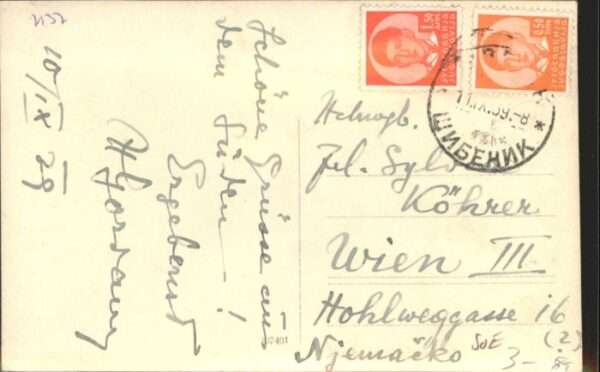 3137
10/IX 39
Schöne Grüsse aus
dem Süden!
Ergebenst
1,50
ЈУГОСЛАВИЈА
JUGOSLAVIJA
0,50
ЈУГОСЛАВИЈА
JUGOSLAVIJA
11.IX.39.-8
ШИБЕНИК *
Hochwgb.
Köhrer
Wien III
Hohlweggasse 16
Njemačko
3-
(2)